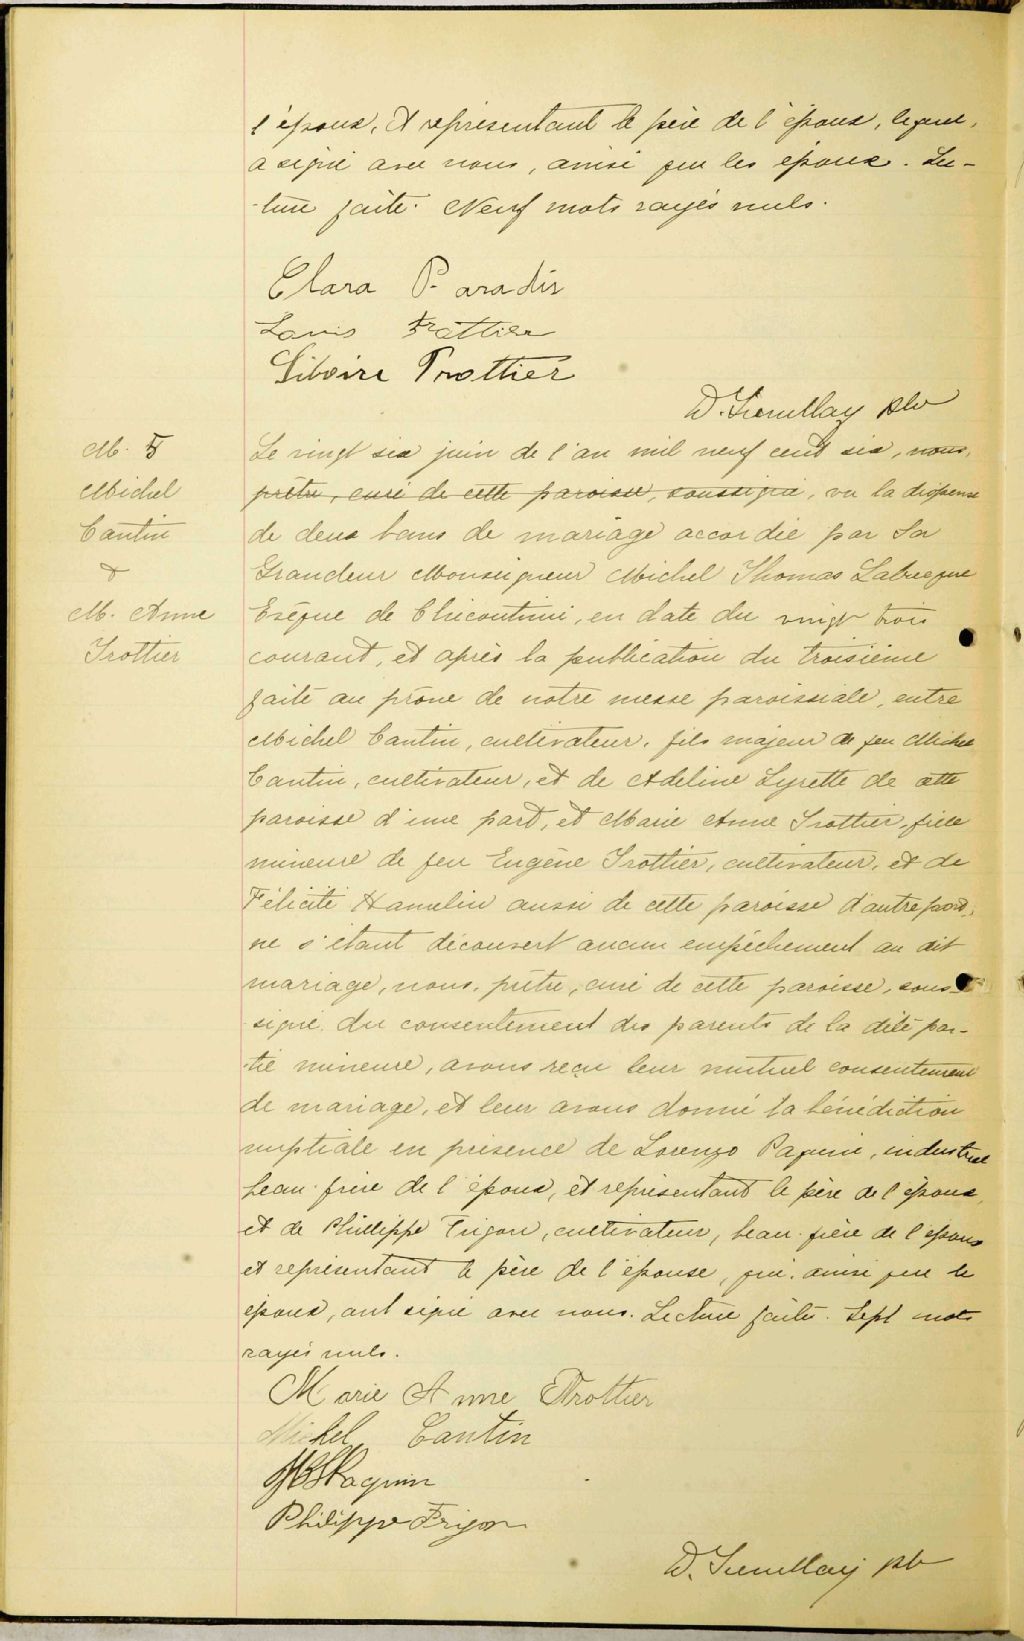 l'époux, et représentant le père de l'époux, lequel,
a signé avec nous, ainsi que les époux. Lec-
-ture faite. Neuf mots rayés nuls.
Clara Paradis
Louis Trottier
Liboire Trottier
D. Tremblay ptre
M. 5
Michel
Cantin
&
M. Anne
Trottier
Le vingt six juin de l'an mil neuf cent six, nous,
prêtre, curé de cette paroisse, soussigné, vu la dispense
de deux bans de mariage accordée par Sa
Grandeur Monseigneur Michel Thomas Labrecque
Evêque de Chicoutimi, en date du vingt trois
courant, et après la publication du troisième
faite au prône de notre messe paroissiale, entre
Michel Cantin, cultivateur, fils majeur de feu Michel
Cantin, cultivateur, et de Adeline Lyrette de cette
paroisse d'une part, et Marie Anne Trottier, fille
mineure de feu Eugène Trottier, cultivateur, et de
Félicité Hamelin aussi de cette paroisse d'autre part,
ne s'étant découvert aucun empêchement au dit
mariage, nous, prêtre, curé de cette paroisse, sous-
signé, du consentement des parents de la dite par-
-tie mineure, avons reçu leur mutuel consentement
de mariage, et leur avons donné la bénédiction
nuptiale en présence de Lorenzo Paquin, industriel
beau-frère de l'époux, et représentant le père de l'époux,
et de Phillippe Frigon, cultivateur, beau-frère de l'époux
et représentant le père de l'épouse, qui, ainsi que les
époux, ont signé avec nous. Lecture faite. Sept mots
rayés nuls.
Marie Anne Trottier
Michel Cantin
Paquin
Philippe Frigon
D. Tremblay ptre